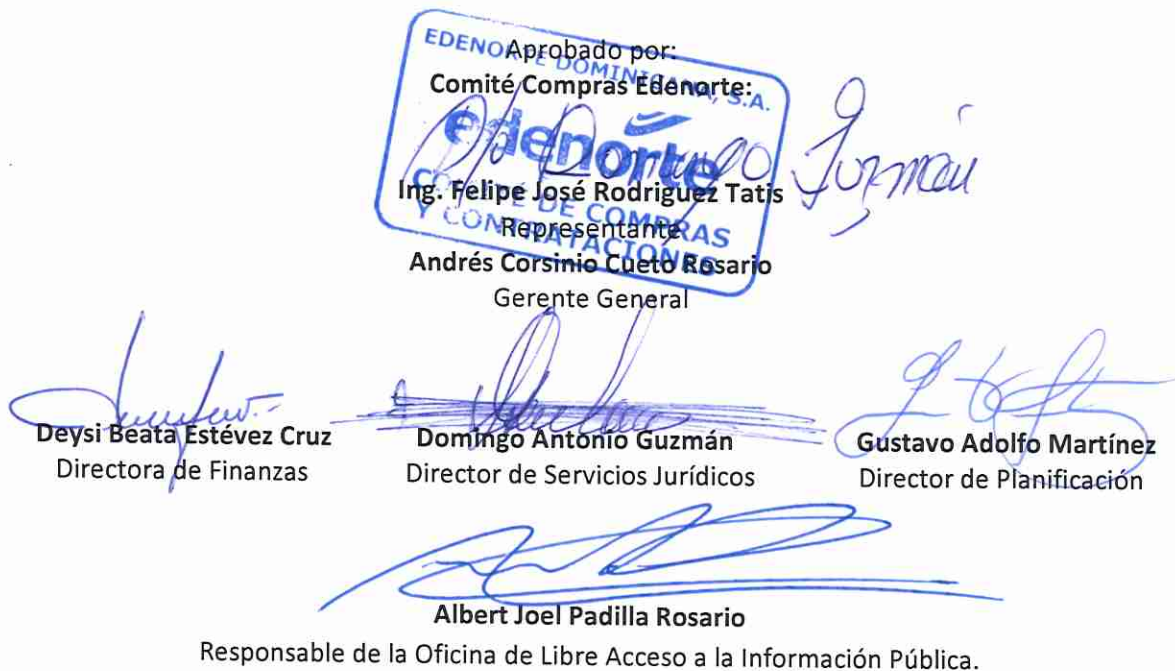 Aprobado por:
Comité Compras Edenorte:
EDENORTE DOMINICANA, S.A.
edenorte
COMITÉ DE COMPRAS
Y CONTRATACIONES
Domingo Guzmán
Ing. Felipe José Rodriguez Tatis
Representante
Andrés Corsinio Cueto Rosario
Gerente General
Deysi Beata Estévez Cruz
Directora de Finanzas
Domingo Antonio Guzmán
Director de Servicios Jurídicos
Gustavo Adolfo Martínez
Director de Planificación
Albert Joel Padilla Rosario
Responsable de la Oficina de Libre Acceso a la Información Pública.